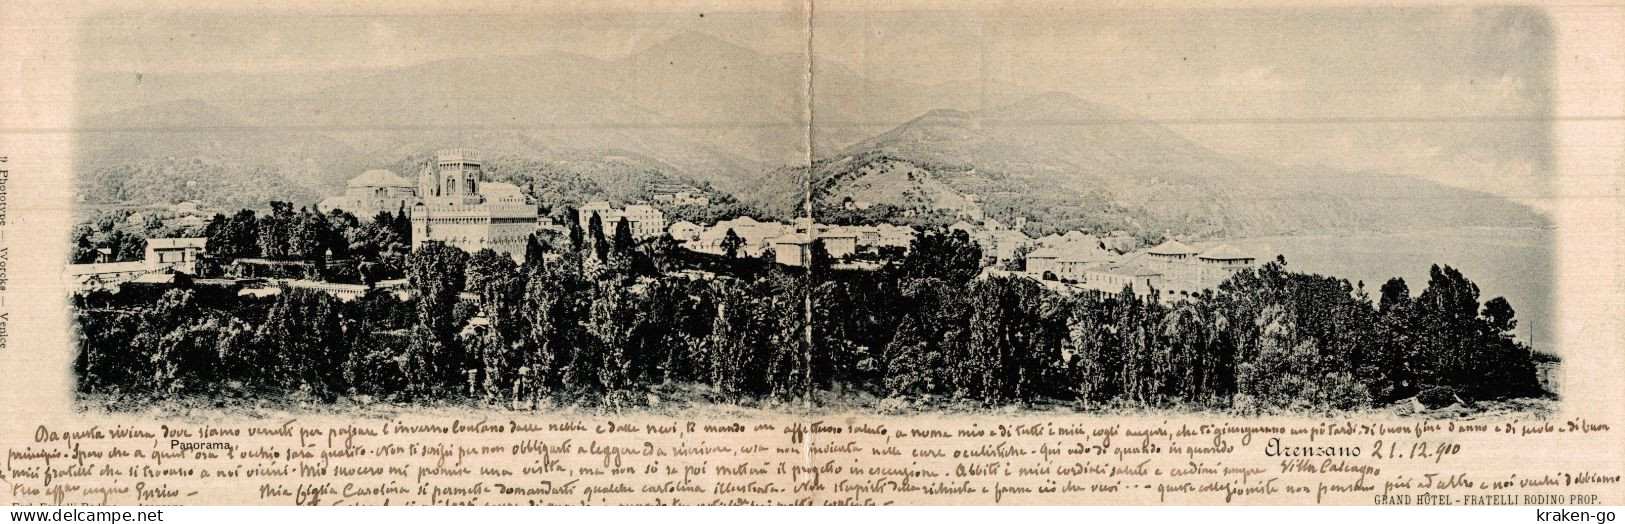 9 Phototype — Worcks — Venice
Da questa riviera, dove siamo venuti per passare l'inverno lontano dalle nebbie e dalle nevi, ti mando un affettuoso saluto, a nome mio e di tutti i miei, cogli auguri, che ti giungeranno un po' tardi, di buon fine d'anno e di secolo e di buon
Panorama
principio. Spero che a quest'ora l'occhio sarà guarito. Non ti scrissi per non obbligarti a leggere ed a riscrivere, cosa non indicata nelle cure oculistiche. Qui vedo di quando in quando
Arenzano 21.12.900
i miei fratelli che si trovano a noi vicini. Mio suocero mi promise una visita, ma non so se poi metterà il progetto in esecuzione. Abbiti i miei cordiali saluti e credimi sempre Villa Calcagno
tuo affmo cugino Enrico — Mia figlia Carolina si permette domandarti qualche cartolina illustrata. Non stupirti della richiesta e fanne ciò che vuoi ... queste collezioniste non pensano più ad altro e noi vecchi dobbiamo
GRAND HÔTEL - FRATELLI RODINO PROP.
Prop. Fratelli Rodino - Arenzano
delcampe.net
kraken-go